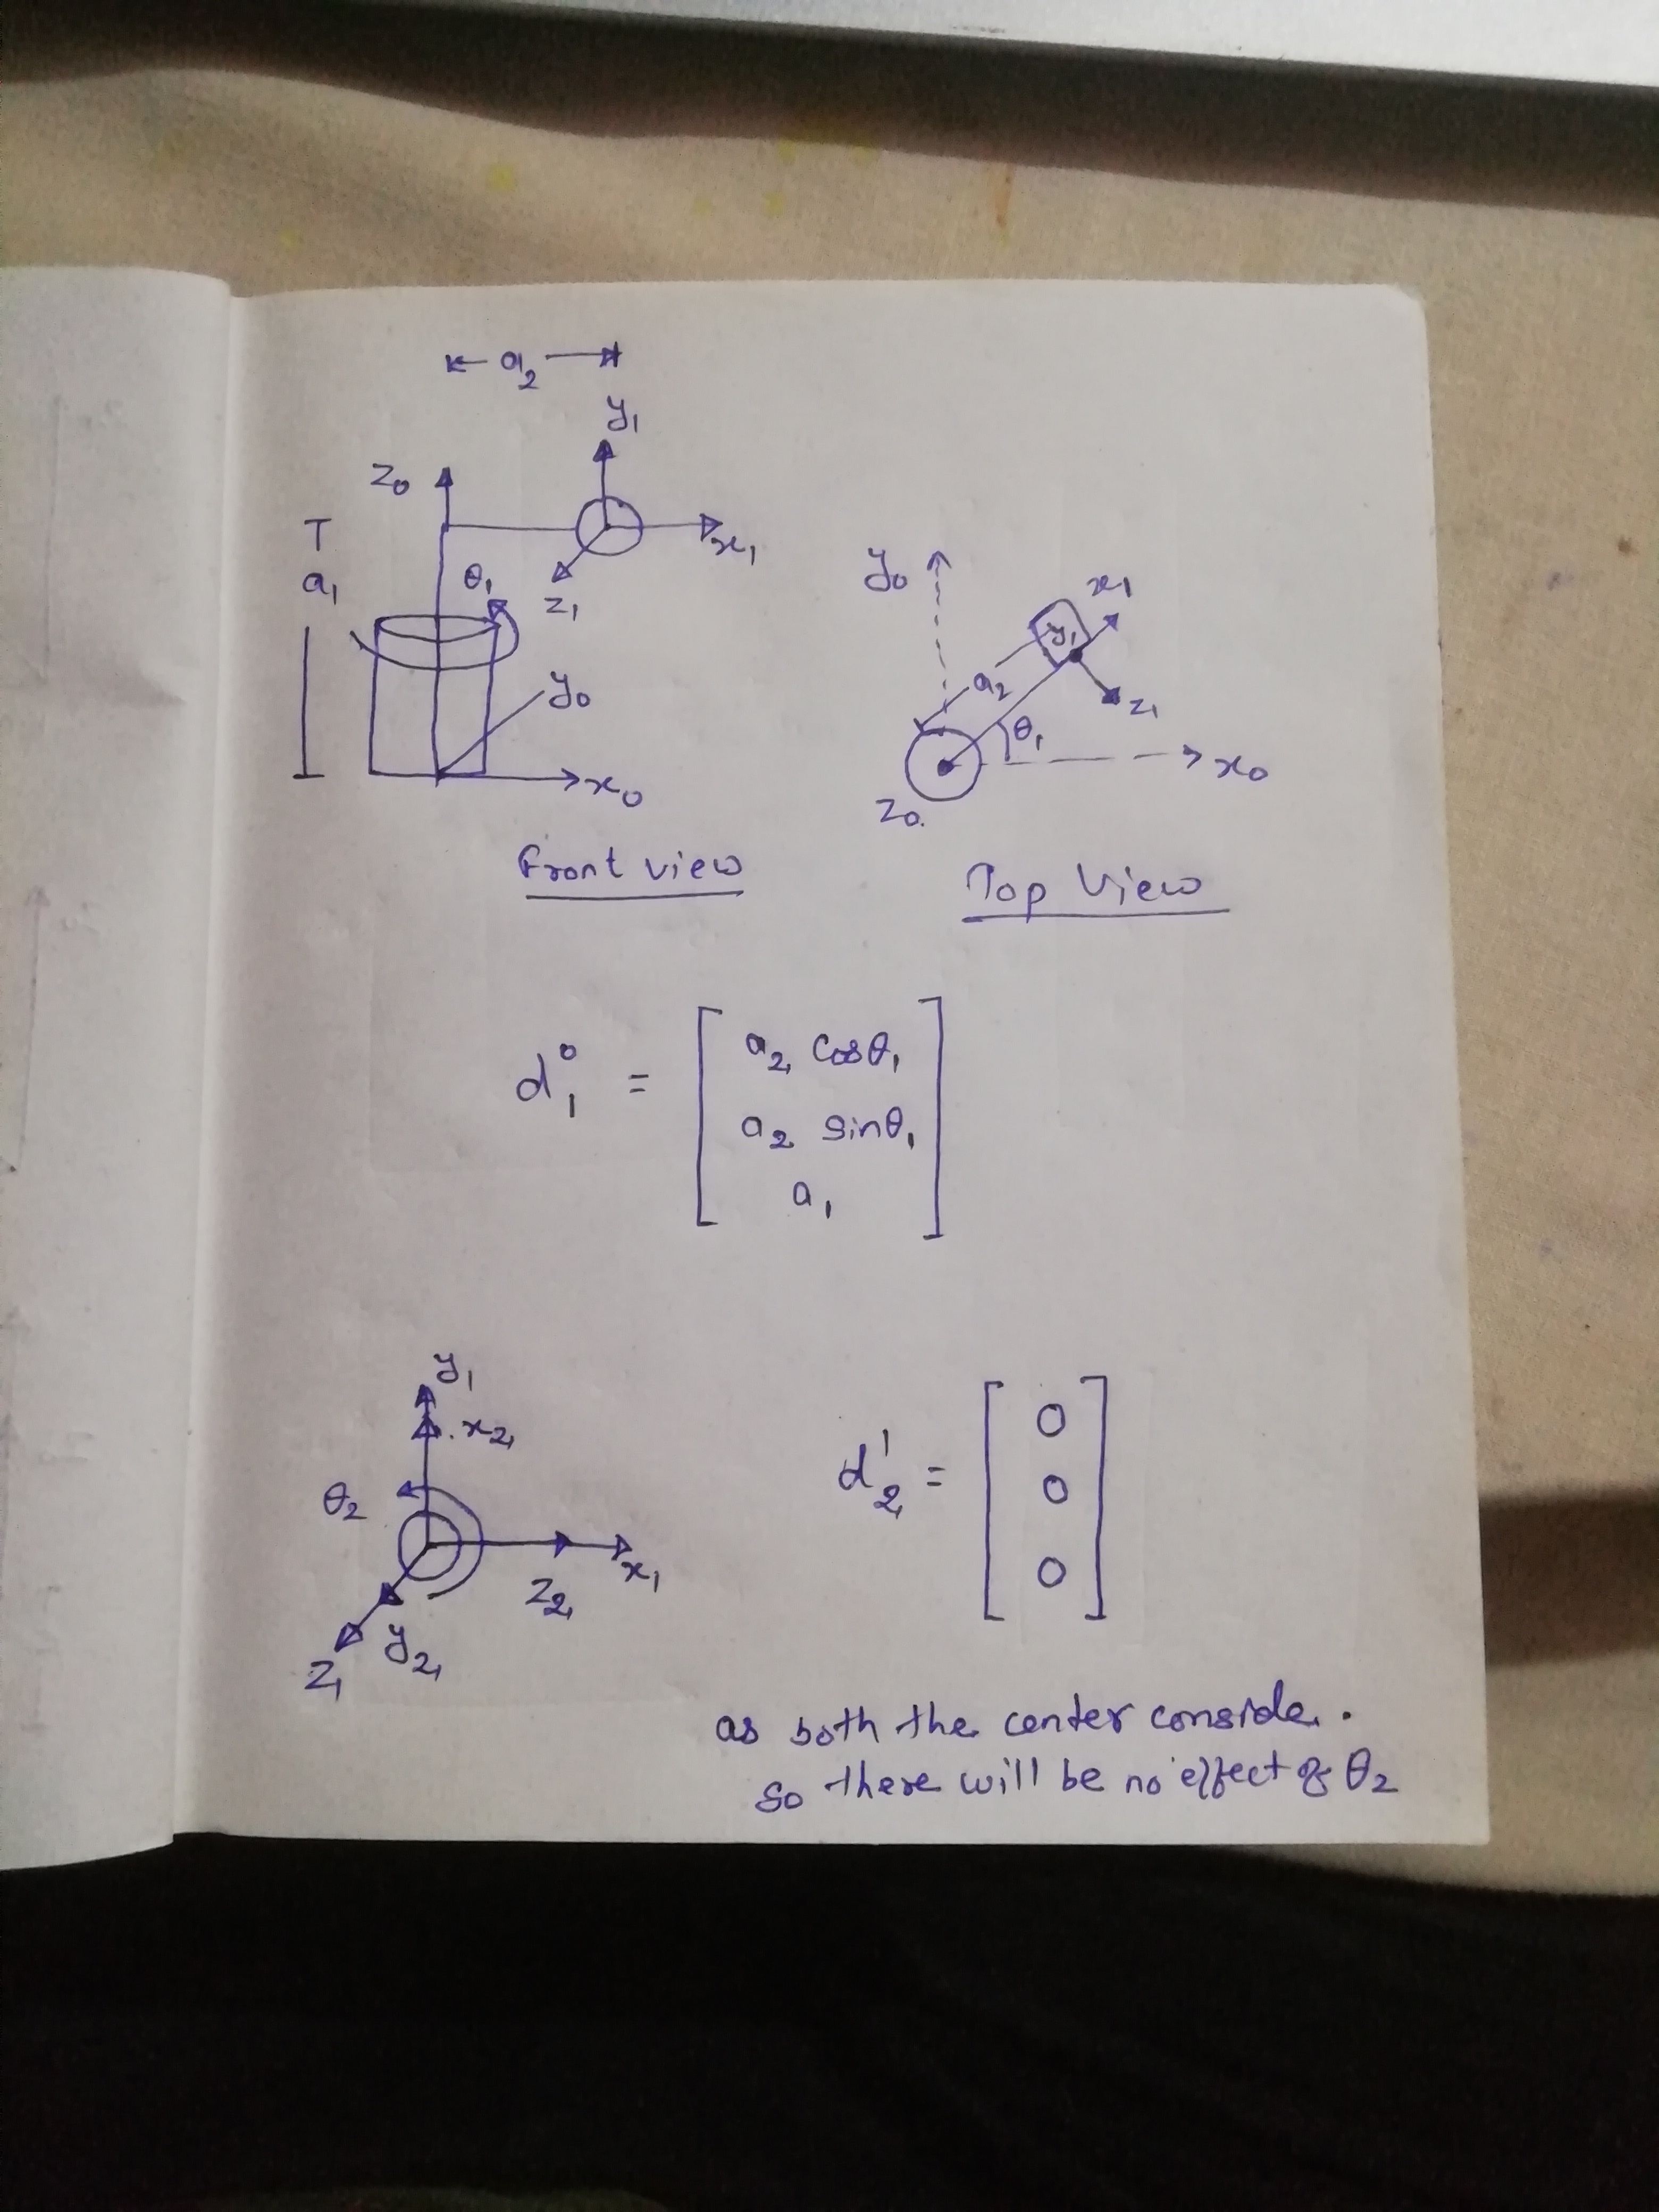 a₂
y₁
z₀
x₁
T
a₁
θ₁
z₁
y₀
x₀
Front view
y₀
x₁
y₁
a₂
z₁
θ₁
x₀
z₀.
Top View
d₁⁰ = [ a₂ cosθ₁
a₂ sinθ₁
a₁ ]
y₁
x₂
θ₂
x₁
z₂
y₂
z₁
d₂¹ = [ 0
0
0 ]
as both the center conside.
so there will be no effect of θ₂